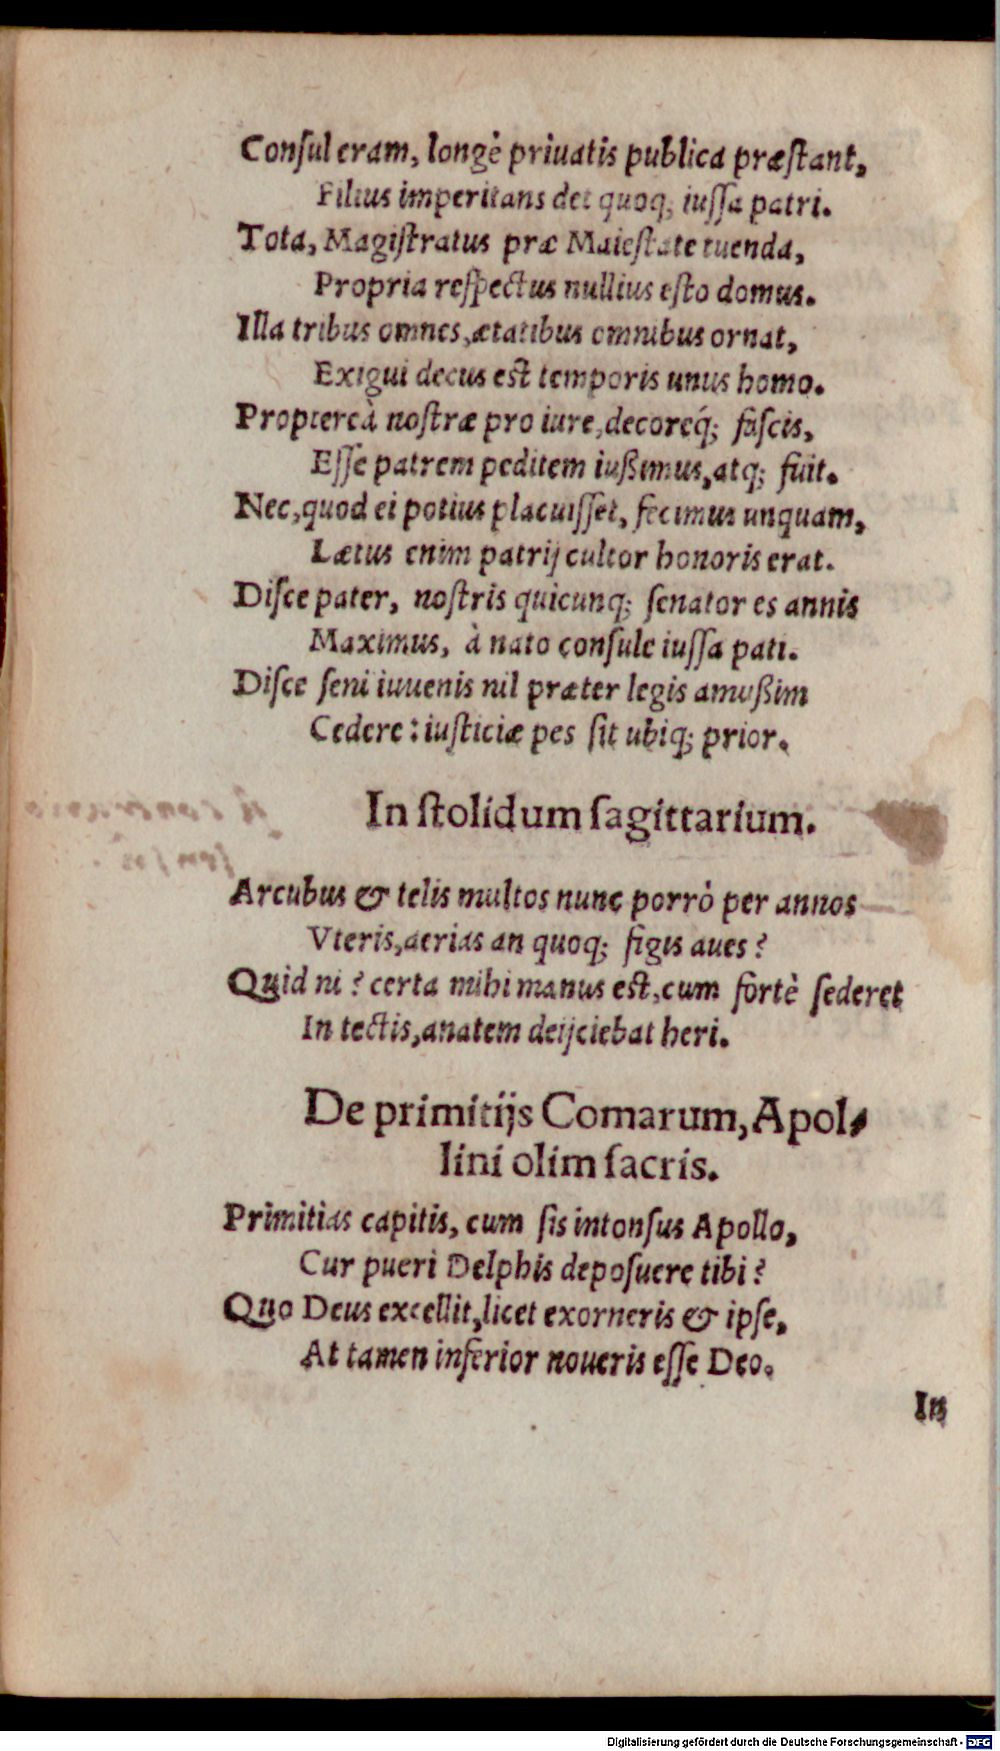 Conſul eram, longè priuatis publica præſtant,
Filius imperitans det quoq; iuſſa patri.
Tota, Magiſtratus præ Maieſtate tuenda,
Propria reſpectus nullius eſto domus.
Illa tribus omnes, ætatibus omnibus ornat,
Exigui decus est temporis unus homo.
Proptereà noſtræ pro iure, decoreq́; faſcis,
Eſſe patrem peditem iußimus, atq; fuit.
Nec, quod ei potius placuiſſet, fecimus unquam,
Lætus enim patrij cultor honoris erat.
Diſce pater, noſtris quicunq; ſenator es annis
Maximus, à nato conſule iuſſa pati.
Diſce ſeni iuuenis nil præter legis amußim
Cedere: iuſticiæ pes ſit ubiq; prior.
In ſtolidum ſagittarium.
Arcubus & telis multos nunc porrò per annos
Vteris, aerias an quoq; figis aues?
Quid ni? certa mihi manus est, cum fortè ſederet
In tectis, anatem deijciebat heri.
De primitijs Comarum, Apol-
lini olim ſacris.
Primitias capitis, cum ſis intonſus Apollo,
Cur pueri Delphis depoſuere tibi?
Quo Deus excellit, licet exorneris & ipſe,
At tamen inferior noueris eſſe Deo.
In
Digitalisierung gefördert durch die Deutsche Forschungsgemeinschaft - DFG